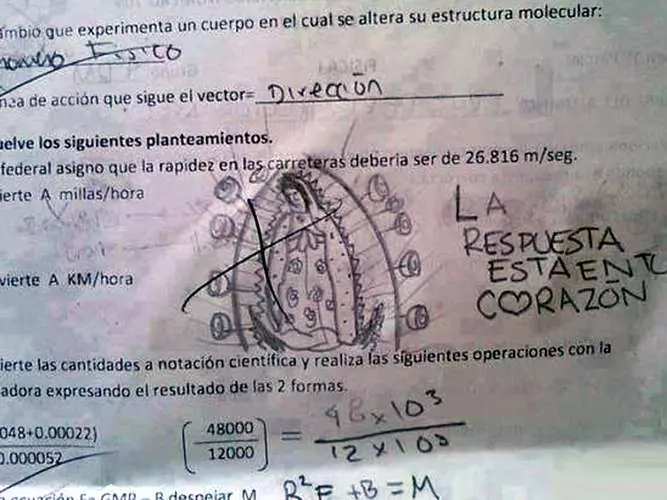 ambio que experimenta un cuerpo en el cual se altera su estructura molecular:
Fisico
nea de acción que sigue el vector= Dirección
uelve los siguientes planteamientos.
federal asigno que la rapidez en las carreteras deberia ser de 26.816 m/seg.
ierte A millas/hora
LA
RESPUESTA
ESTA EN TU
CORAZÓN
vierte A KM/hora
ierte las cantidades a notación cientifica y realiza las siguientes operaciones con la
adora expresando el resultado de las 2 formas.
048+0.00022)
0.000052
48000
12000
=
48x10³
12x10
R²F+B=M